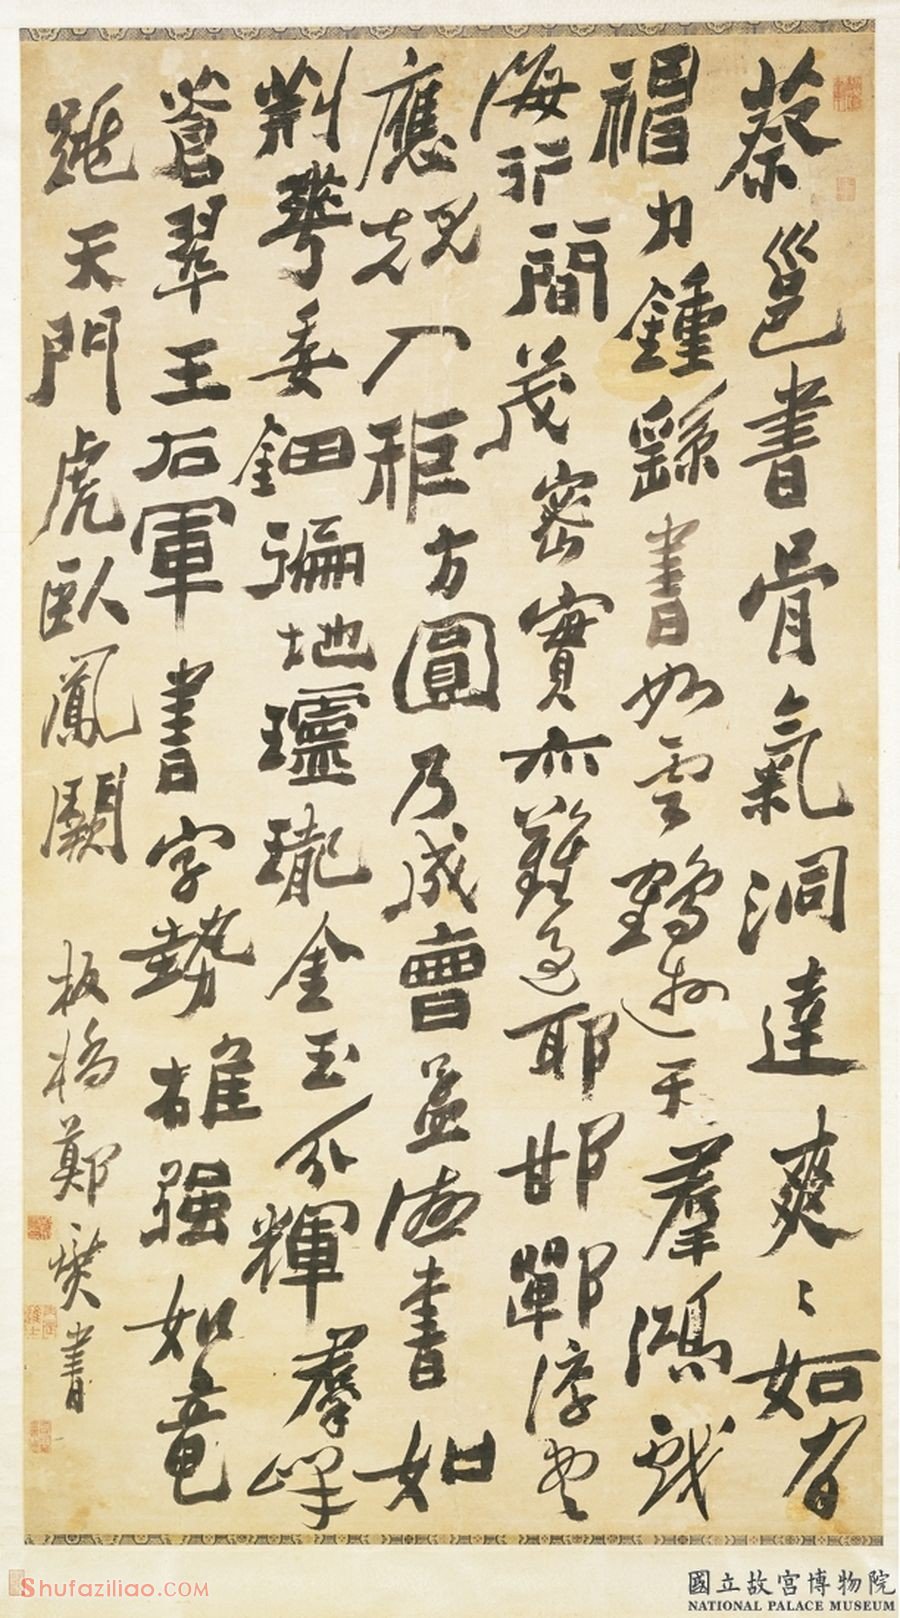 蔡邕書骨氣洞達爽爽如有
神力鍾繇書如雲鵠遊天羣鴻戲
海行間茂密實亦難過耶邯鄲淳書
應規入矩方圓乃成曹孟德書如
荊華委鈿徧地玲瓏金玉分輝羣峰
蒼翠王右軍書字勢雄强如竜
跳天門虎臥鳳闕 板橋鄭燮書
Shufaziliao.COM
國立故宮博物院
NATIONAL PALACE MUSEUM